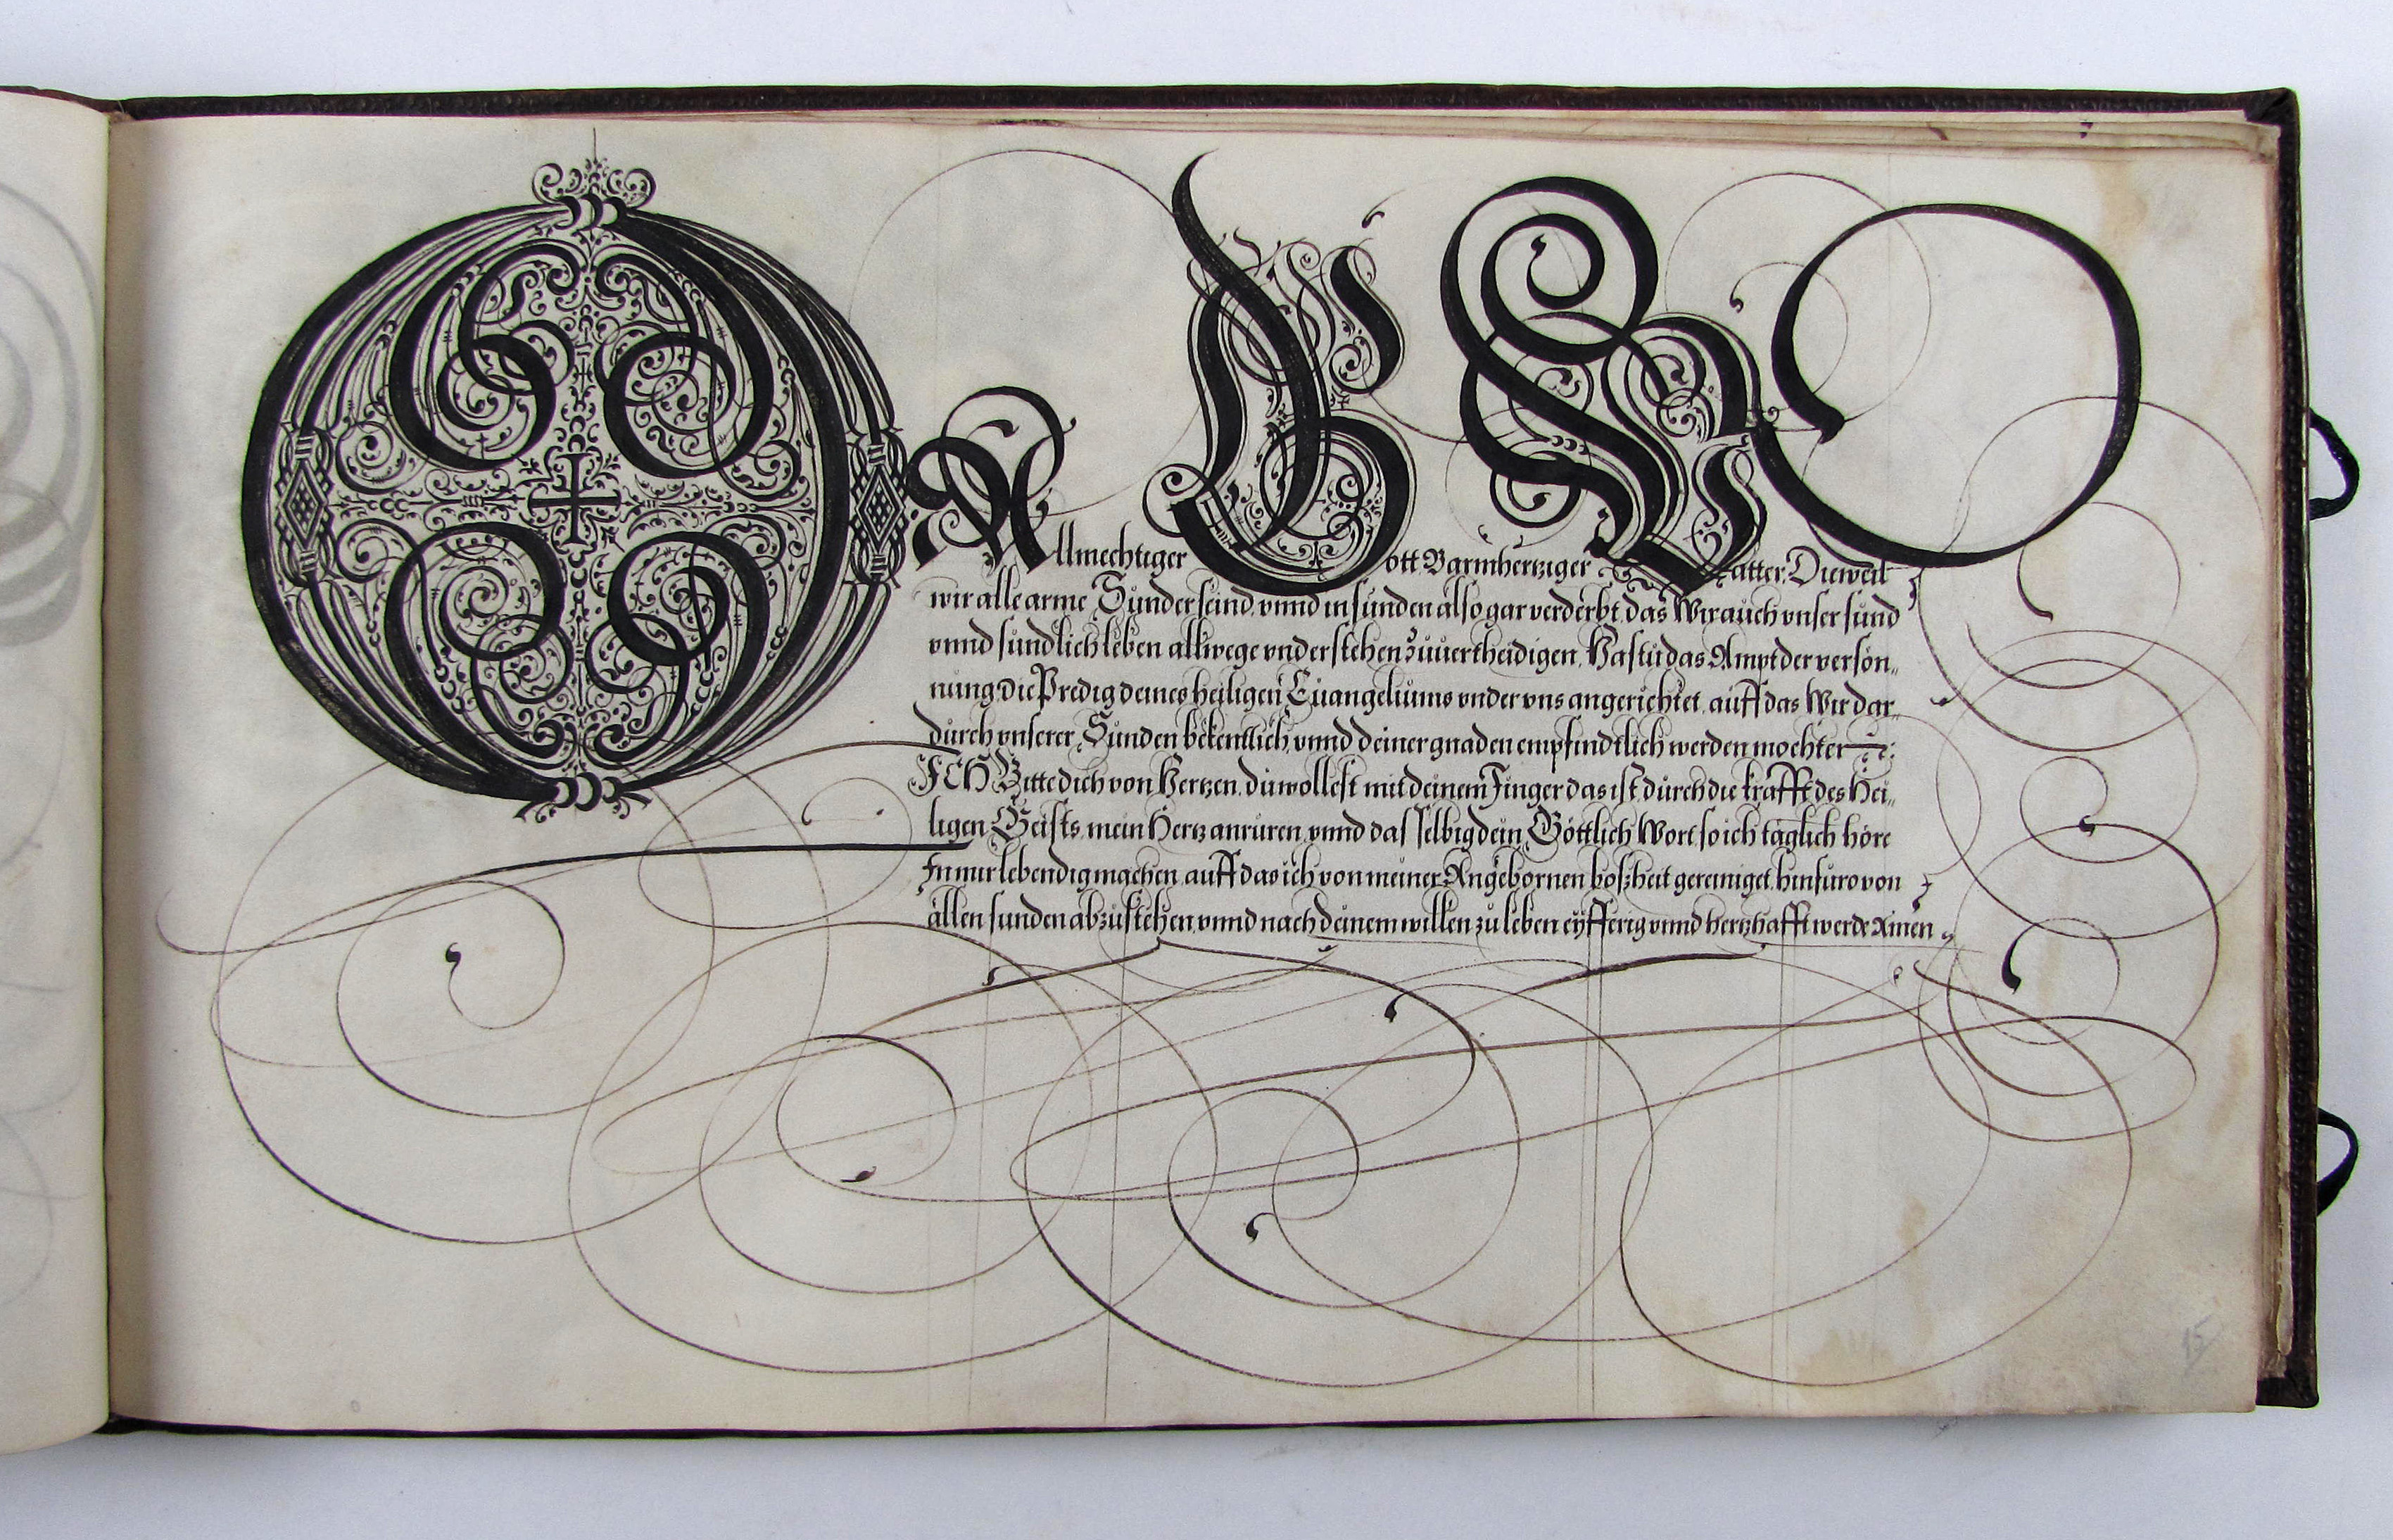 O Allmechtiger Gott Barmhertziger Vatter, Dieweil
wir alle arme Sünder seind, vnnd in sünden also gar verderbt, das Wir auch vnser sünd
vnnd sündlich leben allwege vnderstehen zůuertheidigen, Hastu das Ampt der versön„
nung, die Predig deines heiligen Euangeliums vnder vns angerichtet, auff das Wir dar„
durch vnserer Sünden bekentlich, vnnd deiner gnaden empfindtlich werden mochten
ICH Bitte dich von Hertzen, du wollest mit deinem Finger das ist, durch die krafft des Hei„
ligen Geists, mein Hertz anrüren, vnnd dasselbig dein Göttlich Wort, so ich täglich höre
In mir lebendig machen, auff das ich von meiner Angebornen boßheit gereiniget, hinfuro von
allen sunden abzustehen, vnnd nach deinem willen zu leben eyfferig vnnd hertzhafft werde Amen
15